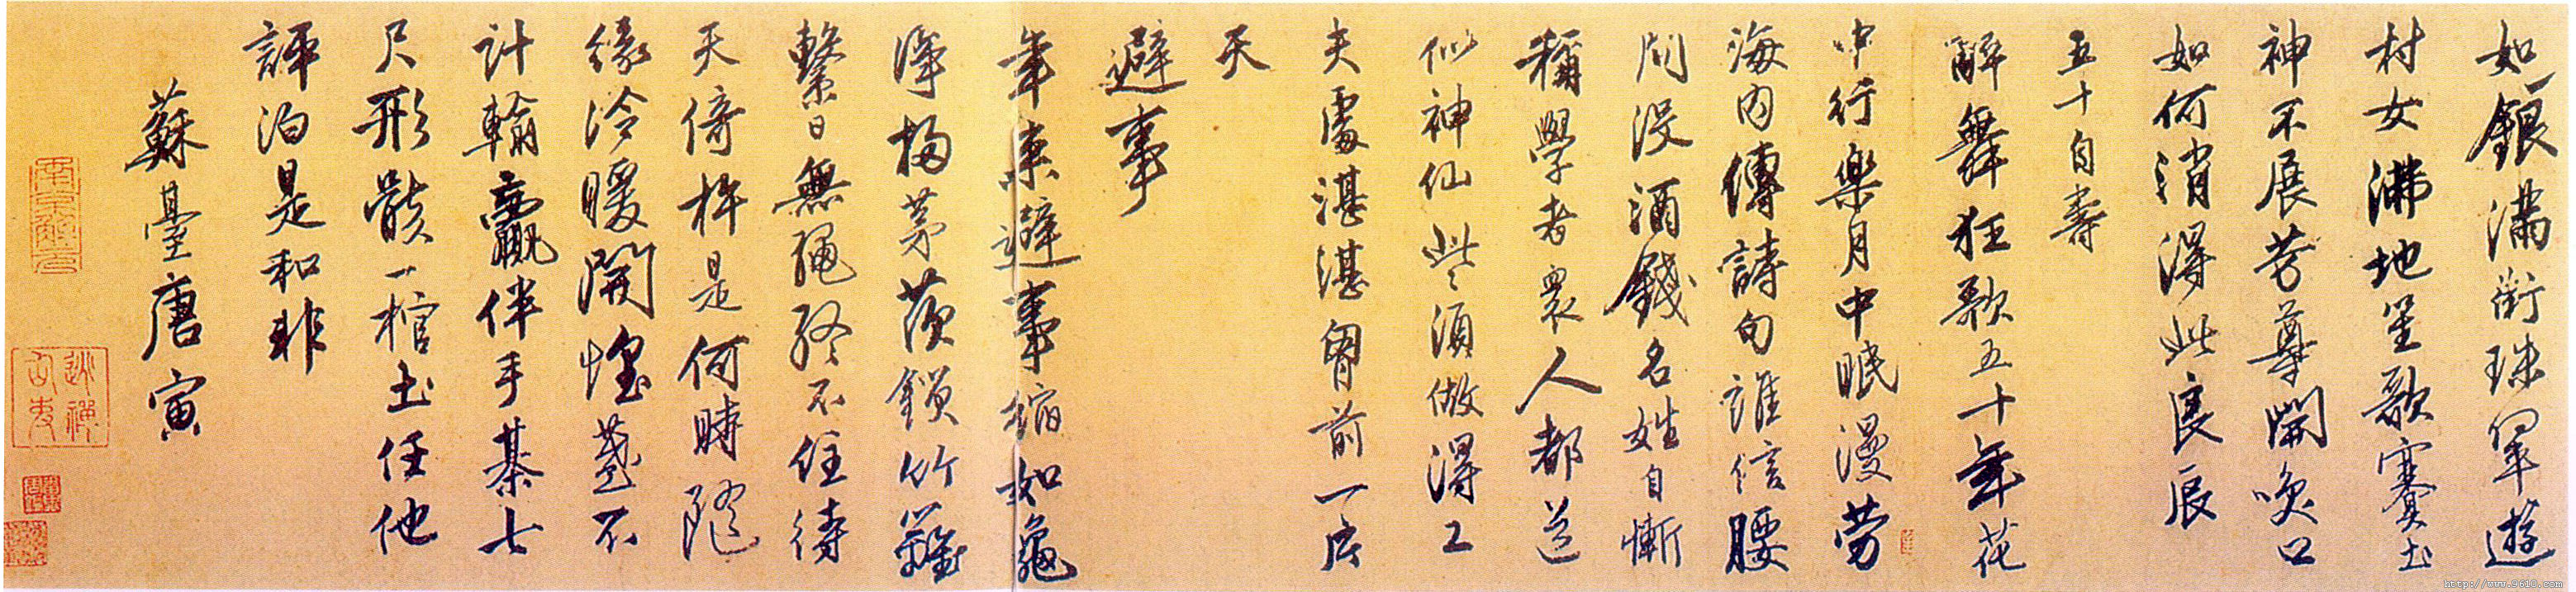 如銀滿街珠翠遊
村女沸地笙歌賽土
神不展芳尊開喚口
如何消得此良辰
五十自壽
醉舞狂歌五十年花
中行樂月中眠漫勞
海內傳詩句誰信腰
間沒酒錢名姓自慚
稱學者衆人都道
似神仙些〻須做得工
夫處湛湛胷前一片
天
避事
年來避事縮如龜
淨掃茅茨鎖竹籬
繫日無繩終不住待
天倚杵是何時隨
緣冷暖開懷盞不
計輸贏伴手棊七
尺形骸一棺土任他
評泊是和非
蘇臺唐寅
http://www.9610.com